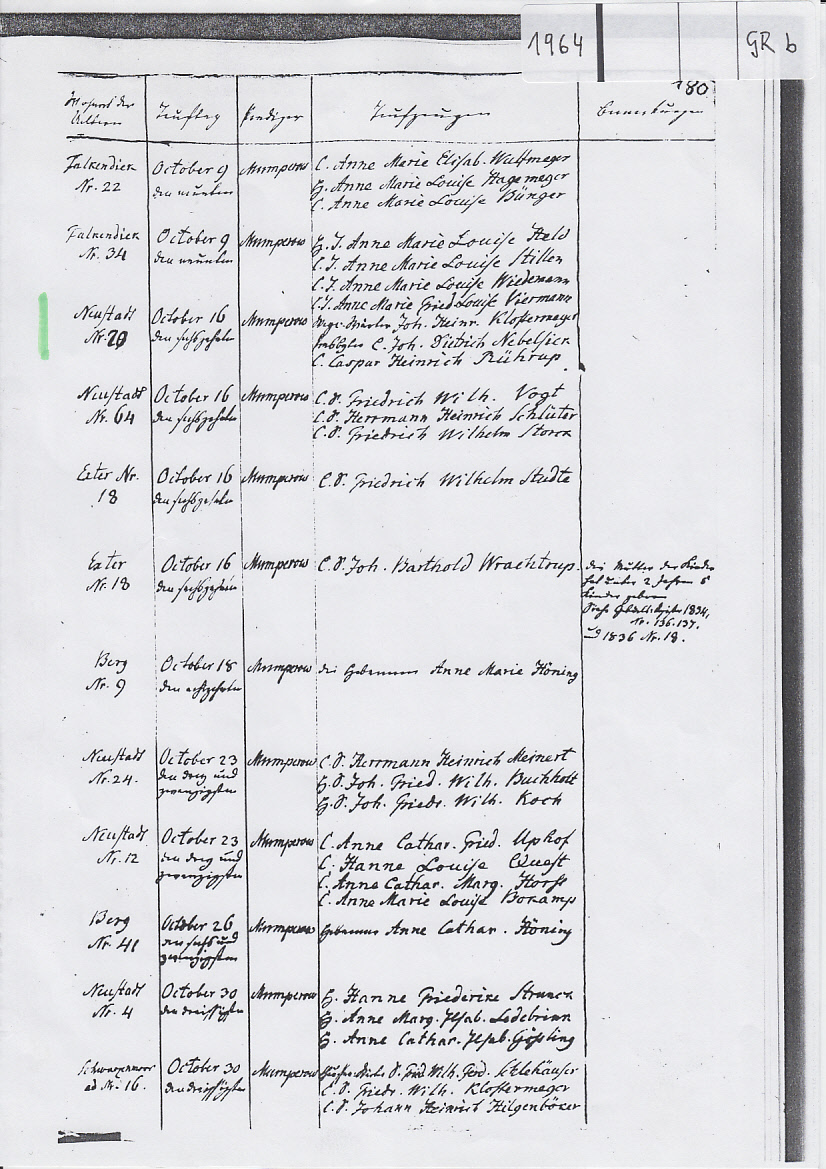 1964 GR b
180
Wohnort der Aeltern Tauftag Prediger Taufzeugen Bemerkungen
Falkendiek Nr. 22
October 9 den neunten
Mumperow
C. Anne Marie Elisab. Wulfmeyer
H. Anne Marie Louise Hagemeyer
C. Anne Marie Louise Bünger
Falkendiek Nr. 34
October 9 den neunten
Mumperow
H. J. Anne Marie Louise Held
C. J. Anne Marie Louise Stillen
C. J. Anne Marie Louise Wiedemann
C. J. Anne Marie Fried. Louise Viermann
Neustadt Nr. 20
October 16 den sechszehnten
Mumperow
Joh. Heinr. Klostermeyer
C. Joh. Dietrich Nebelsiek
C. Caspar Heinrich Rührup
Neustadt Nr. 64
October 16 den sechszehnten
Mumperow
C. S. Friedrich Wilh. Vogt
C. S. Herrmann Heinrich Schlüter
C. S. Friedrich Wilhelm Storck
Exter Nr. 18
October 16 den sechszehnten
Mumperow
C. S. Friedrich Wilhelm Studte
Exter Nr. 18
October 16 den sechszehnten
Mumperow
C. S. Joh. Barthold Wrachtrup
die Mutter der Kinder
hat unter 2 Jahren 5
Kinder geboren
1834,
Nr. 136. 137.
und 1836 Nr. 18.
Berg Nr. 9
October 18 den achtzehnten
Mumperow
die Hebamme Anne Marie Höning
Neustadt Nr. 24.
October 23 den drey und zwanzigsten
Mumperow
C. S. Herrmann Heinrich Meinert
H. S. Joh. Fried. Wilh. Buchholt
H. S. Joh. Friedr. Wilh. Koch
Neustadt Nr. 12
October 23 den drey und zwanzigsten
Mumperow
C. Anne Cathar. Fried. Uphof
C. Hanne Louise Quest
C. Anne Cathar. Marg. Horst
C. Anne Marie Louise Bokamp
Berg Nr. 41
October 26 den sechs und zwanzigsten
Mumperow
Hebamme Anne Cathar. Höning
Neustadt Nr. 4
October 30 den dreissigsten
Mumperow
H. Hanne Friederike Strunck
H. Anne Marg. Ilsab. Ledebrink
H. Anne Cathar. Ilsab. Gössling
Schwarzenmoor ad Nr. 16.
October 30 den dreissigsten
Mumperow
S. Fried. Wilh. Ferd.
C. S. Friedr. Wilh. Klostermeyer
C. S. Johann Heinrich Hilgenböker